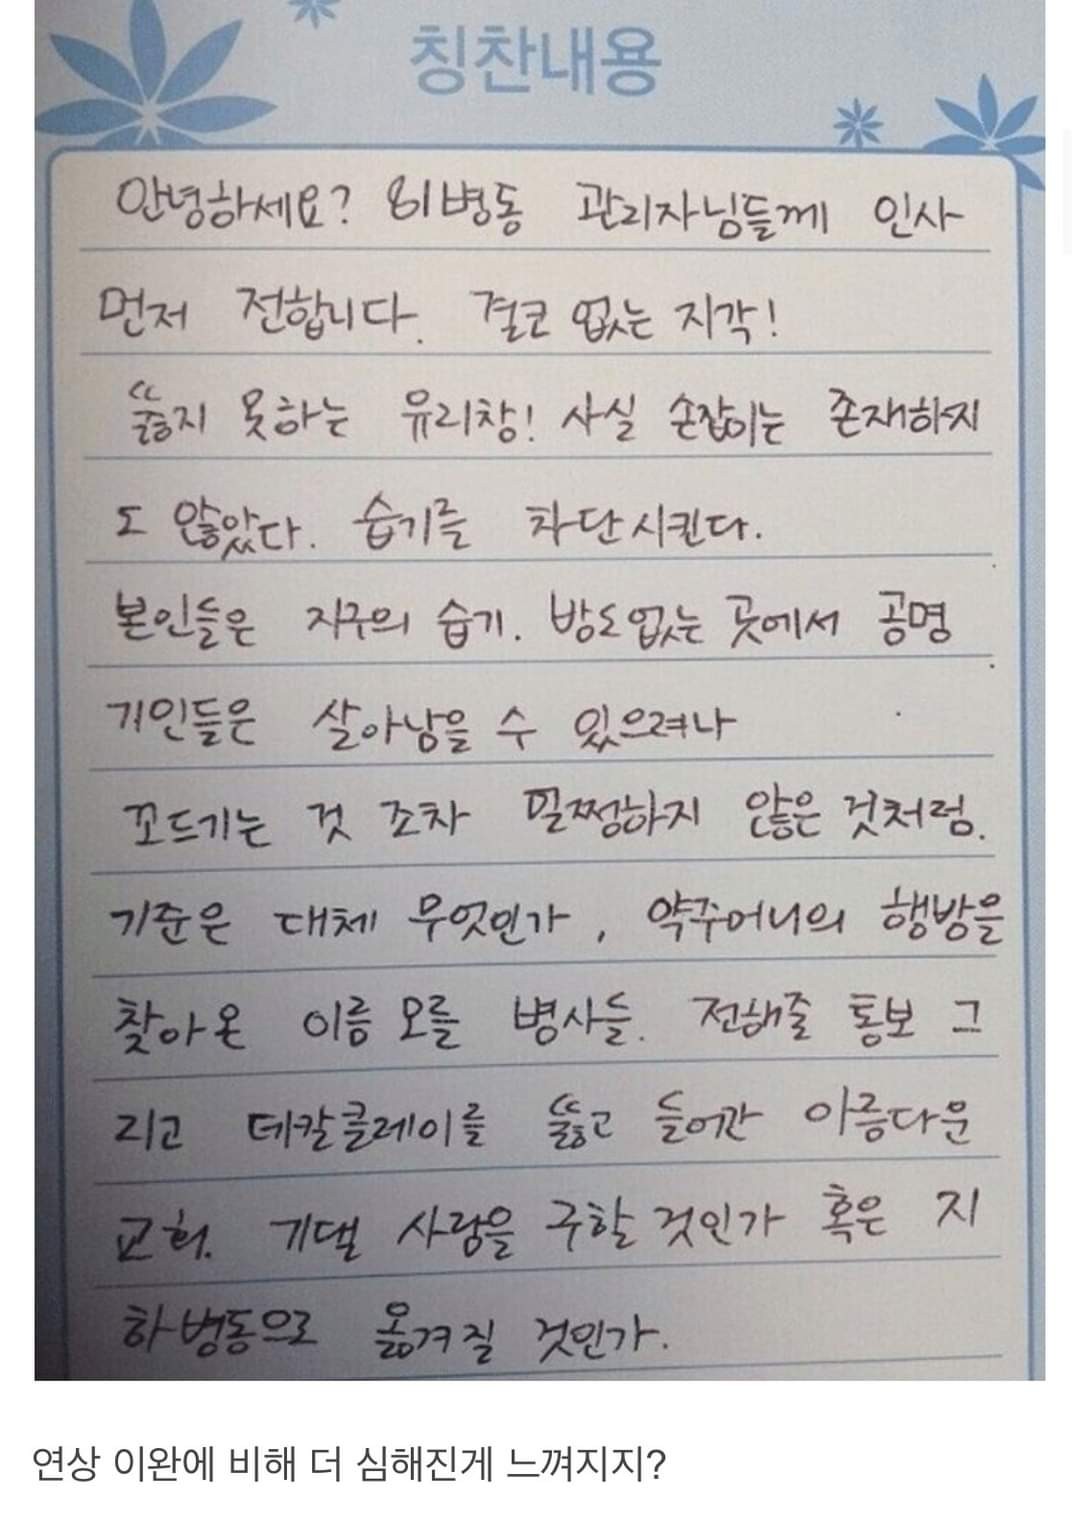 칭찬내용
안녕하세요? 81병동 관리자님들께 인사
먼저 전합니다. 결코 없는 지각!
뚫지 못하는 유리창! 사실 손잡이는 존재하지
도 않았다. 습기를 차단시킨다.
본인들은 지구의 습기. 방도없는 곳에서 공명
기인들은 살아남을 수 있으려나
꼬드기는 것 조차 멀쩡하지 않은 것처럼.
기준은 대체 무엇인가, 약주머니의 행방을
찾아온 이름 모를 병사들. 전해줄 통보 그
리고 데칼클레이를 뚫고 들어간 아름다운
교회. 기댈 사람을 구할 것인가 혹은 지
하병동으로 옮겨질 것인가.
연상 이완에 비해 더 심해진게 느껴지지?